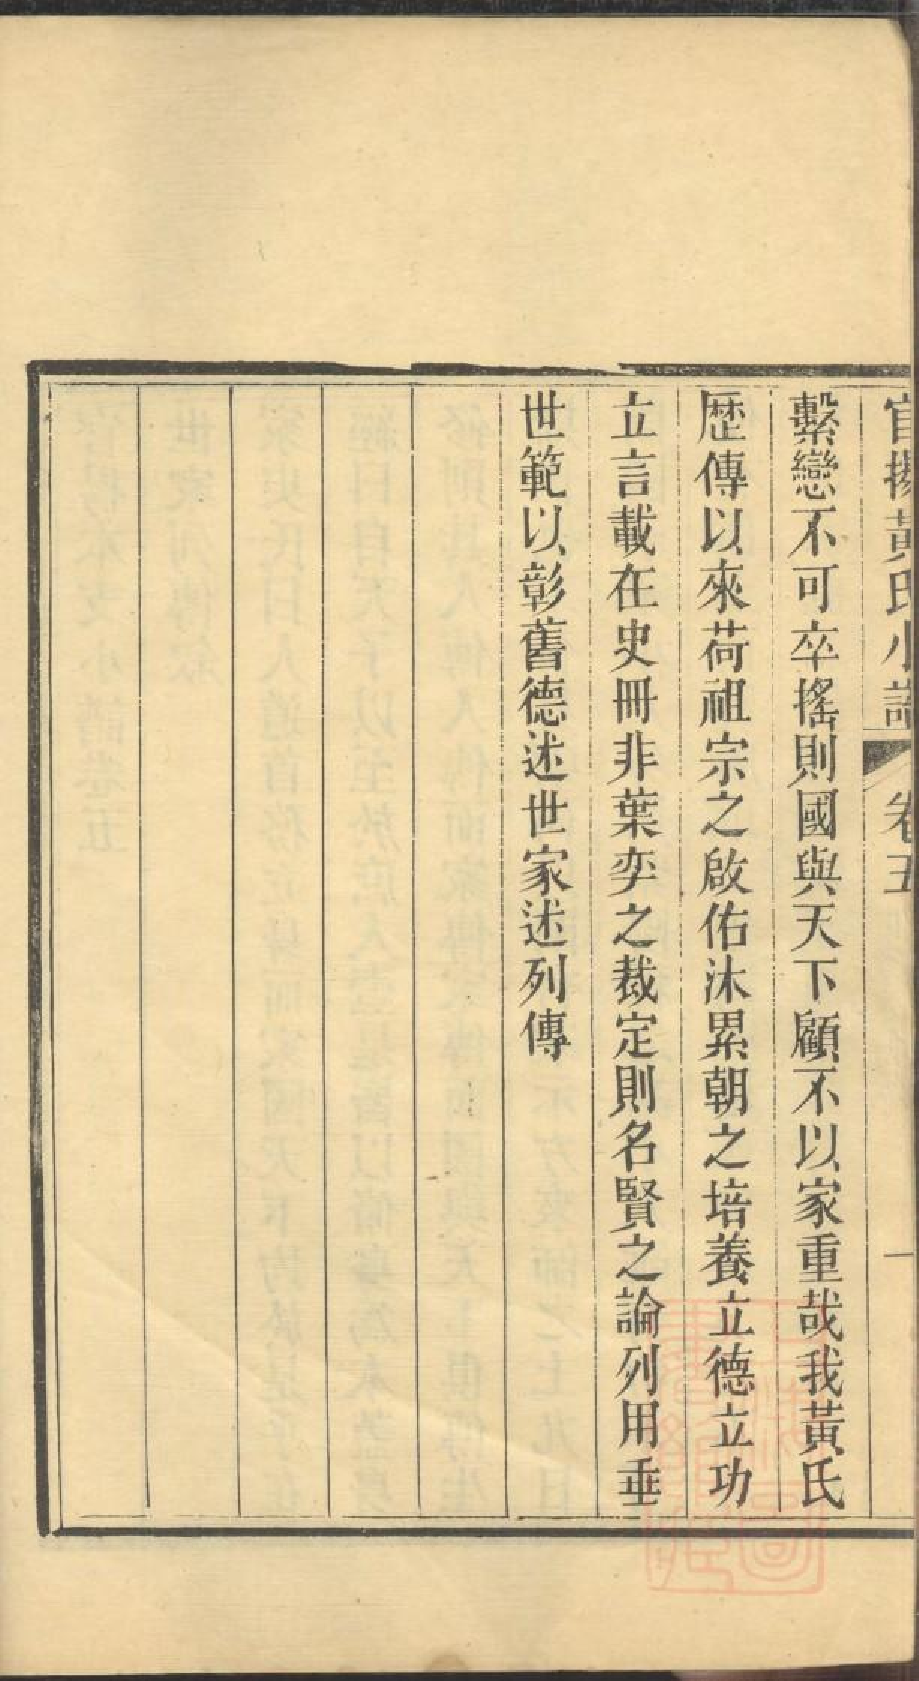 官揚黃氏小譜 卷五 一
繫戀不可卒搖則國與天下顧不以家重哉我黃氏
歴傳以來荷祖宗之啟佑沐累朝之培養立德立功
立言載在史冊非葉奕之裁定則名賢之論列用垂
世範以彰舊德述世家述列傳